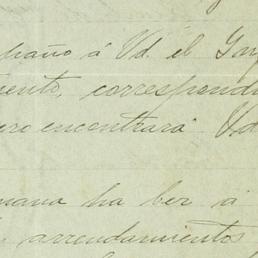 paño á Vd. él
iento, correspondi
ero encontrara Vd
mana ha ber á
arrendamientos